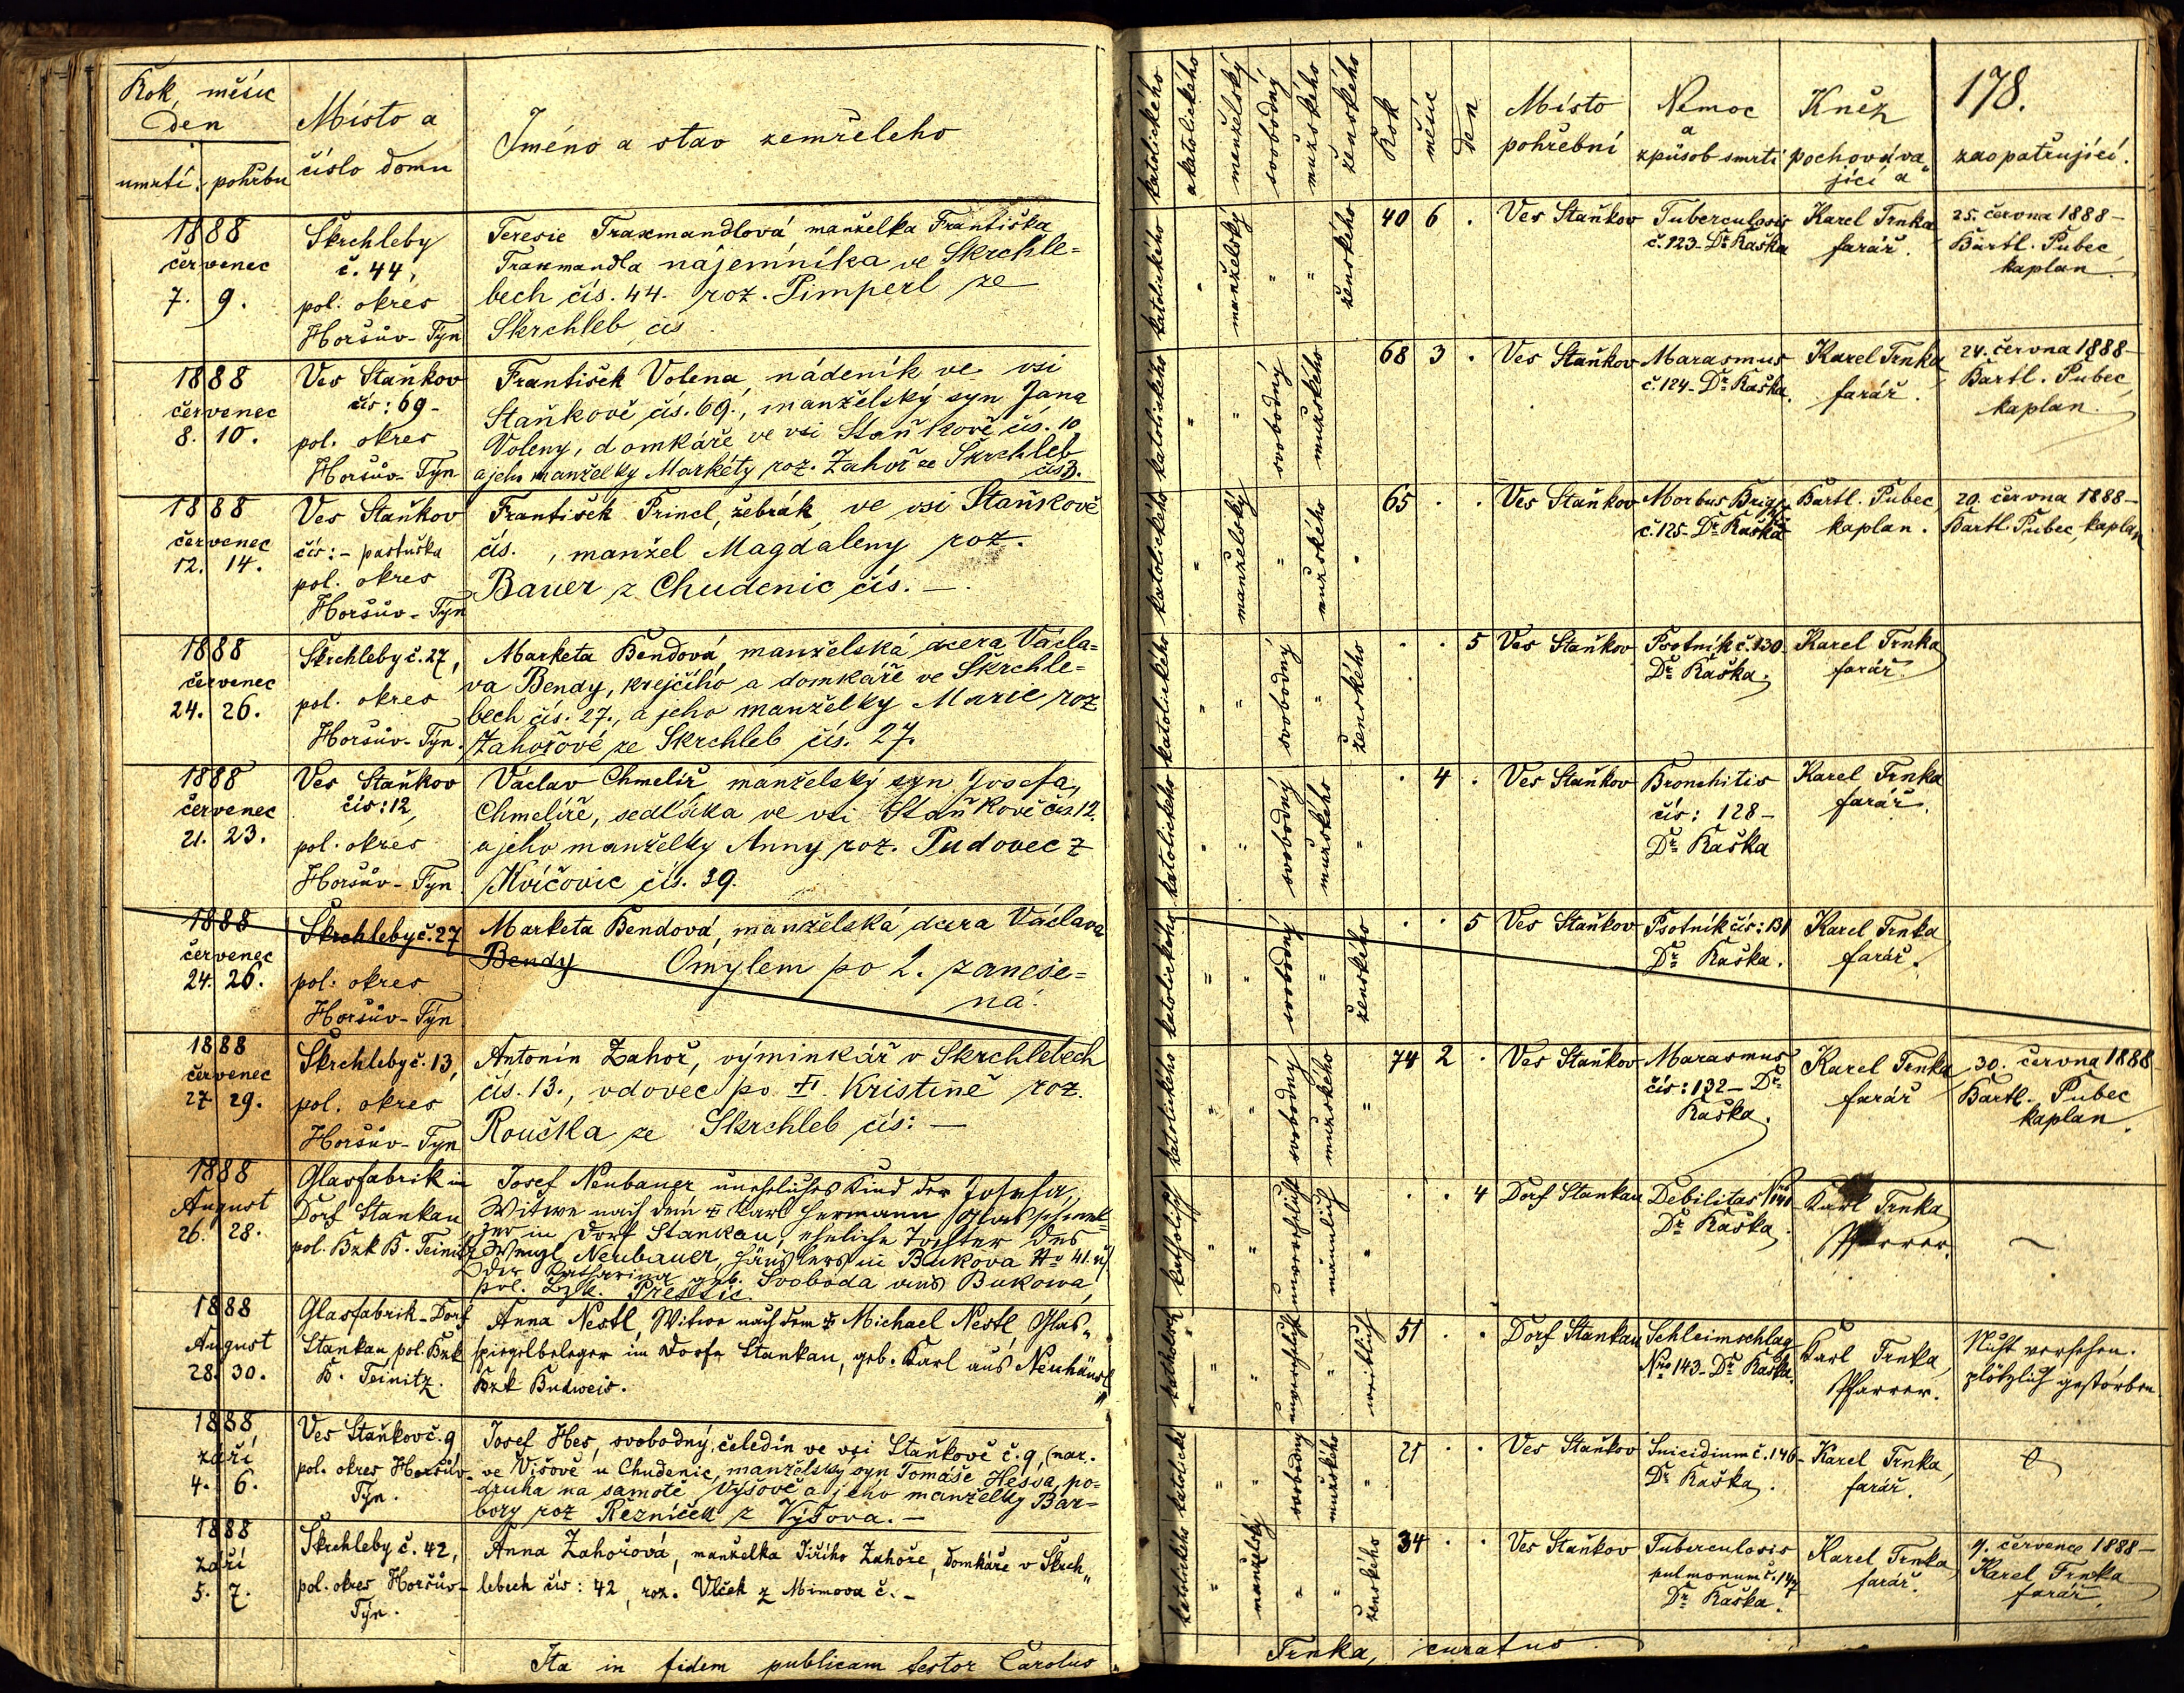 Rok, měsíc
den
umrtí. pohřbu
Místo a
číslo domu
Jméno a stav zemřeleho
1888
červenec
7. 9.
Skrchleby
č. 44,
pol. okres
Horšův-Týn
Teresie Traxmandlová manželka Františka
Traxmandla nájemníka ve Skrchle=
bech čís. 44. roz. Pimperl ze
Skrchleb čís
1888
červenec
8. 10.
Ves Staňkov
čís: 69-
pol. okres
Horšův-Týn
František Volena, nádeník ve vsi
Staňkově čís. 69., manželský syn Jana
Voleny, domkáře ve vsi Staňkově čís. 10
a jeho manželky Markéty roz. Zahoř ze Skrchleb
čís 3.
1888
červenec
12. 14.
Ves Staňkov
čís: - pastuška
pol. okres
Horšův-Týn
František Princl, žebrák, ve vsi Staňkově
čís. , manžel Magdaleny roz.
Bauer z Chudenic čís. —
1888
červenec
24. 26.
Skrchleby č. 27,
pol. okres
Horšův-Týn.
Marketa Bendová, manželská dcera Václa=
va Bendy, krejčího a domkáře ve Skrchle=
bech čís. 27., a jeho manželky Marie roz
Zahořové ze Skrchleb čís. 27.
1888
červenec
21. 23.
Ves Staňkov
čís: 12,
pol. okres
Horšův-Týn.
Václav Chmelíř, manželský syn Josefa,
Chmelíře, sedláka ve vsi Staňkově čís. 12.
a jeho manželky Anny roz. Pudovec z
Kvíčovic čís. 39.
1888
červenec
24. 26.
Skrchleby č. 27
pol. okres
Horšův-Týn
Marketa Bendová, manželská dcera Václava
Bendy Omylem po 2. zaneše=
ná.
1888
červenec
27 29.
Skrchleby č. 13,
pol. okres
Horšův-Týn
Antonín Zahoř, výminkář v Skrchlebech
čís. 13., vdovec po † Kristině roz.
Roučka ze Skrchleb čís: —
1888
August
26. 28.
Glasfabrik in
Dorf Stankau
pol. Bzk B. Teinitz
Josef Neubauer uneheliches Kind der Josefa,
Witwe nach dem † Karl Hermann Glasschmel=
zer in Dorf Stankau, eheliche Tochter des
Wenzl Neubauer, Häuslers in Bukova No 41. u
der Katharina geb. Svoboda aus Bukowa,
pol. Bzk. Přestic.
1888
August
28. 30.
Glasfabrik-Dorf
Stankau pol. Bzk
B. Teinitz.
Anna Nestl, Witwe nach dem † Michael Nestl, Glas„
spiegelbeleger im Dorfe Stankau, geb. Karl aus Neuhäusl,
Bzk Budweis.
1888,
září
4. 6.
Ves Staňkov č. 9
pol. okres Horšův-
Týn.
Josef Hes, svobodný čeledín ve vsi Staňkově č. 9, (nar.
ve Višově u Chudenic, manželský syn Tomáše Hessa, po-
druha na samotě Vyšově a jeho manželky Bar=
bory roz Řezníček z Výšova. —
1888
září
5. 7.
Skrchleby č. 42,
pol. okres Horšův-
Týn.
Anna Zahořová, manželka Jiřího Zahoře, domkáře v Skrch„
lebech čís: 42, roz. Vlček z Mimova č. -
Ita in fidem publicam testor Carolus
katolického
akatolického
manželský
svobodný
mužského
ženského
Rok
měsíc
den
Místo
pohřební
Nemoc
a
způsob smrti
Kněz
pochováva
jící a
178.
zaopatrující.
katolického " manželský " " ženského
40 6 .
Ves Staňkov
Tuberculosis
č. 123- Dr Kaška
Karel Trnka
farář.
25. června 1888-
Bartl. Pubec,
kaplan.
katolického " " svobodný mužského
68 3 .
Ves Staňkov
Marasmus
č. 124- Dr Kaška.
Karel Trnka
farář.
24. června 1888-
Bartl. Pubec,
kaplan.
katolického " manželský " mužského "
65 . .
Ves Staňkov
Morbus Brigti
č. 125- Dr Kaška
Bartl. Pubec,
kaplan.
20. června 1888-
Bartl. Pubec, kaplan
katolického " " svobodný " ženského
. . 5
Ves Staňkov
Psotník č. 130
Dr Kaška.
Karel Trnka
farář.
katolického " " svobodný mužského "
. 4 .
Ves Staňkov
Bronchitis
čís: 128-
Dr Kaška
Karel Trnka
farář.
katolického " " svobodný " ženského
. . 5
Ves Staňkov
Psotník čís: 131
Dr Kaška.
Karel Trnka
farář.
katolického " " svobodný mužského "
74 2 .
Ves Staňkov
Marasmus
čís: 132- Dr
Kaška.
Karel Trnka
farář
30. června 1888
Bartl. Pubec
kaplan.
katholisch " " unverehelicht männlich "
. . 4
Dorf Stankau
Debilitas Nro 141
Dr Kaška
Karl Trnka
Pfarrer.
katholisch " " unverehelicht " weiblich
51 . .
Dorf Stankau
Schleimschlag
Nro 143- Dr Kaška.
Karl Trnka,
Pfarrer.
Nicht versehen.
plötzlich gestorben
katolické " " svobodný mužského "
21 . .
Ves Staňkov
Suicidium č. 146-
Dr Kaška.
Karel Trnka,
farář.
katolického " manželský " " ženského
34 . .
Ves Staňkov
Tuberculosis
pulmonum č. 147
Dr Kaška.
Karel Trnka,
farář.
9. července 1888-
Karel Trnka
farář.
Trnka, curatus